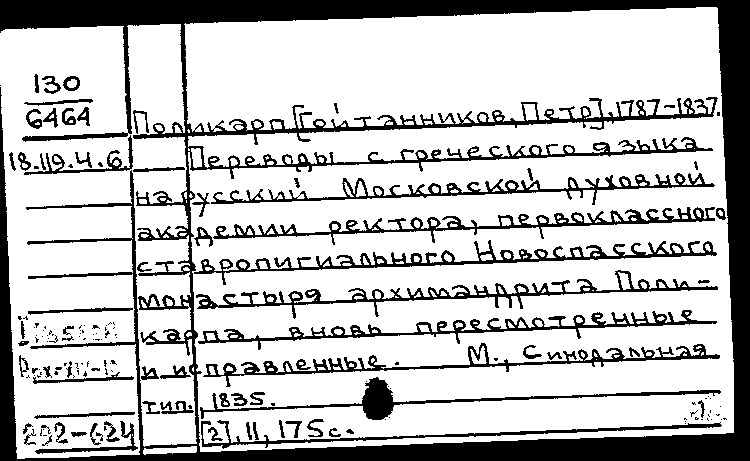 130
6464
Поликарп [Гойтанников, Петр], 1787-1837.
18.119.4.6. Переводы с греческого языка
на русский Московской духовной
академии ректора, первоклассного
ставропигиального Новоспасского
монастыря архимандрита Поли-
карпа, вновь пересмотренные
и исправленные. М., Синодальная
тип., 1835.
292-624 [2], II, 175 с.